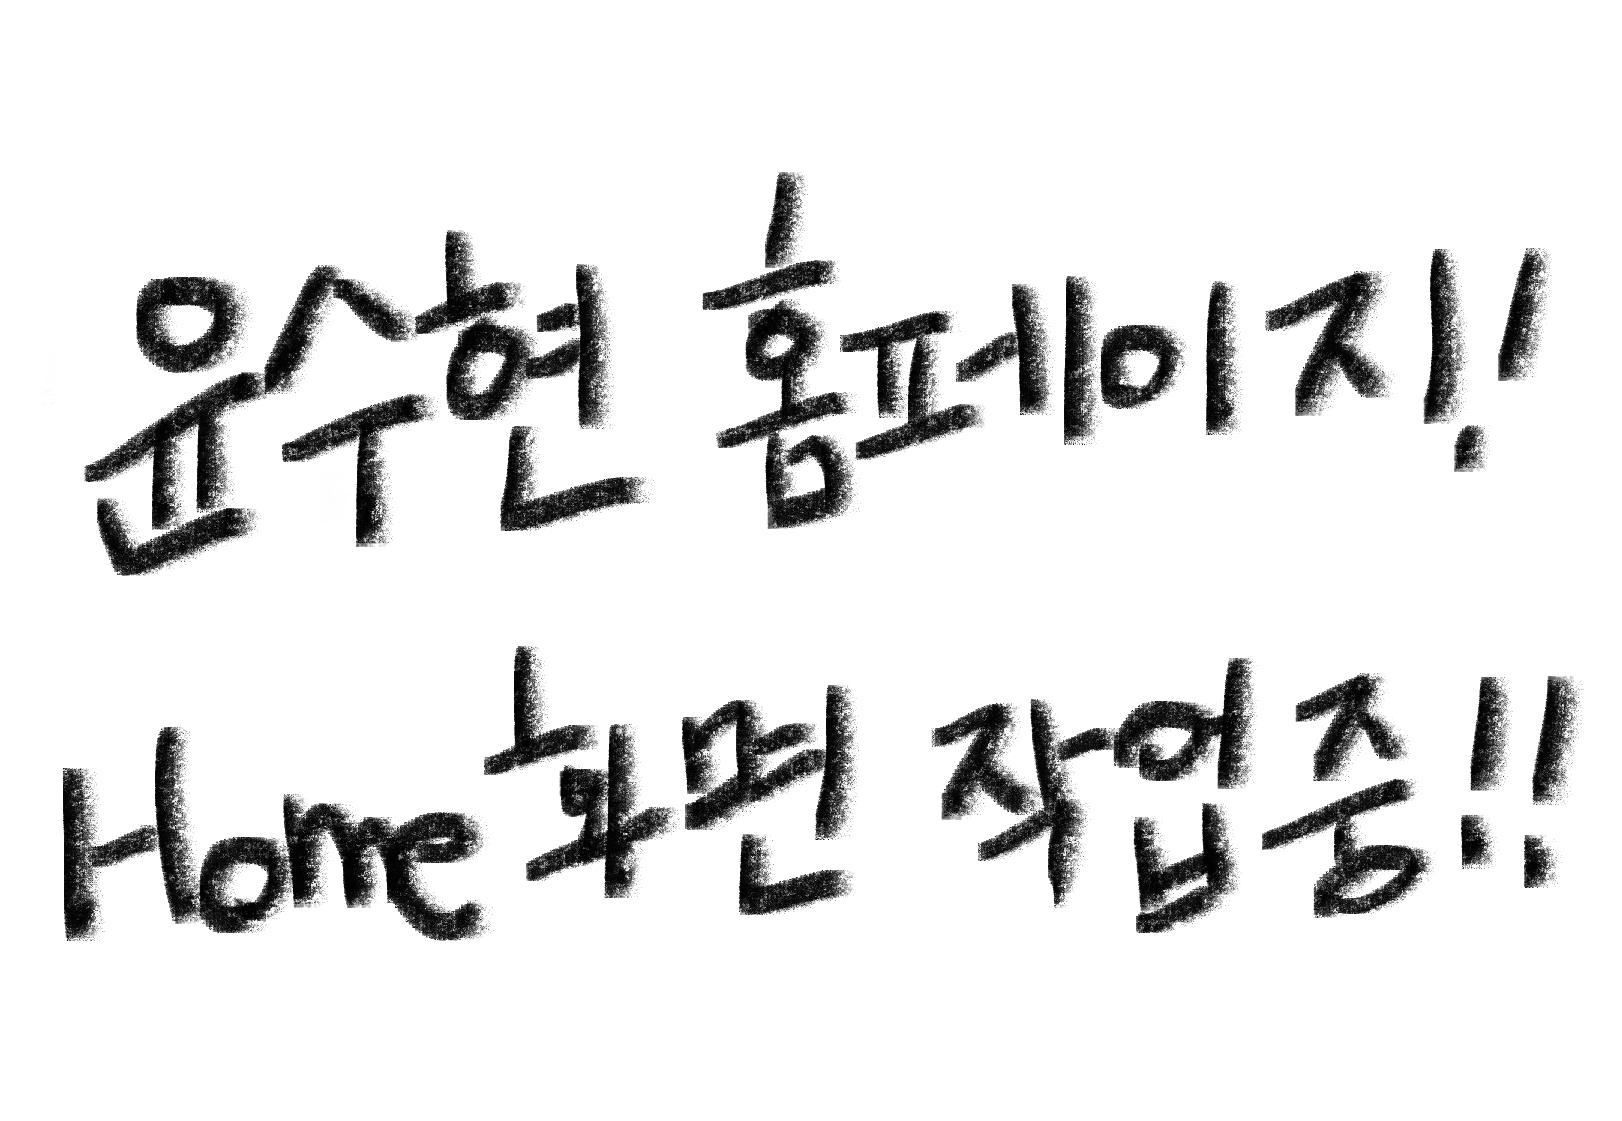 윤수현 홈페이지!
Home화면 작업중!!